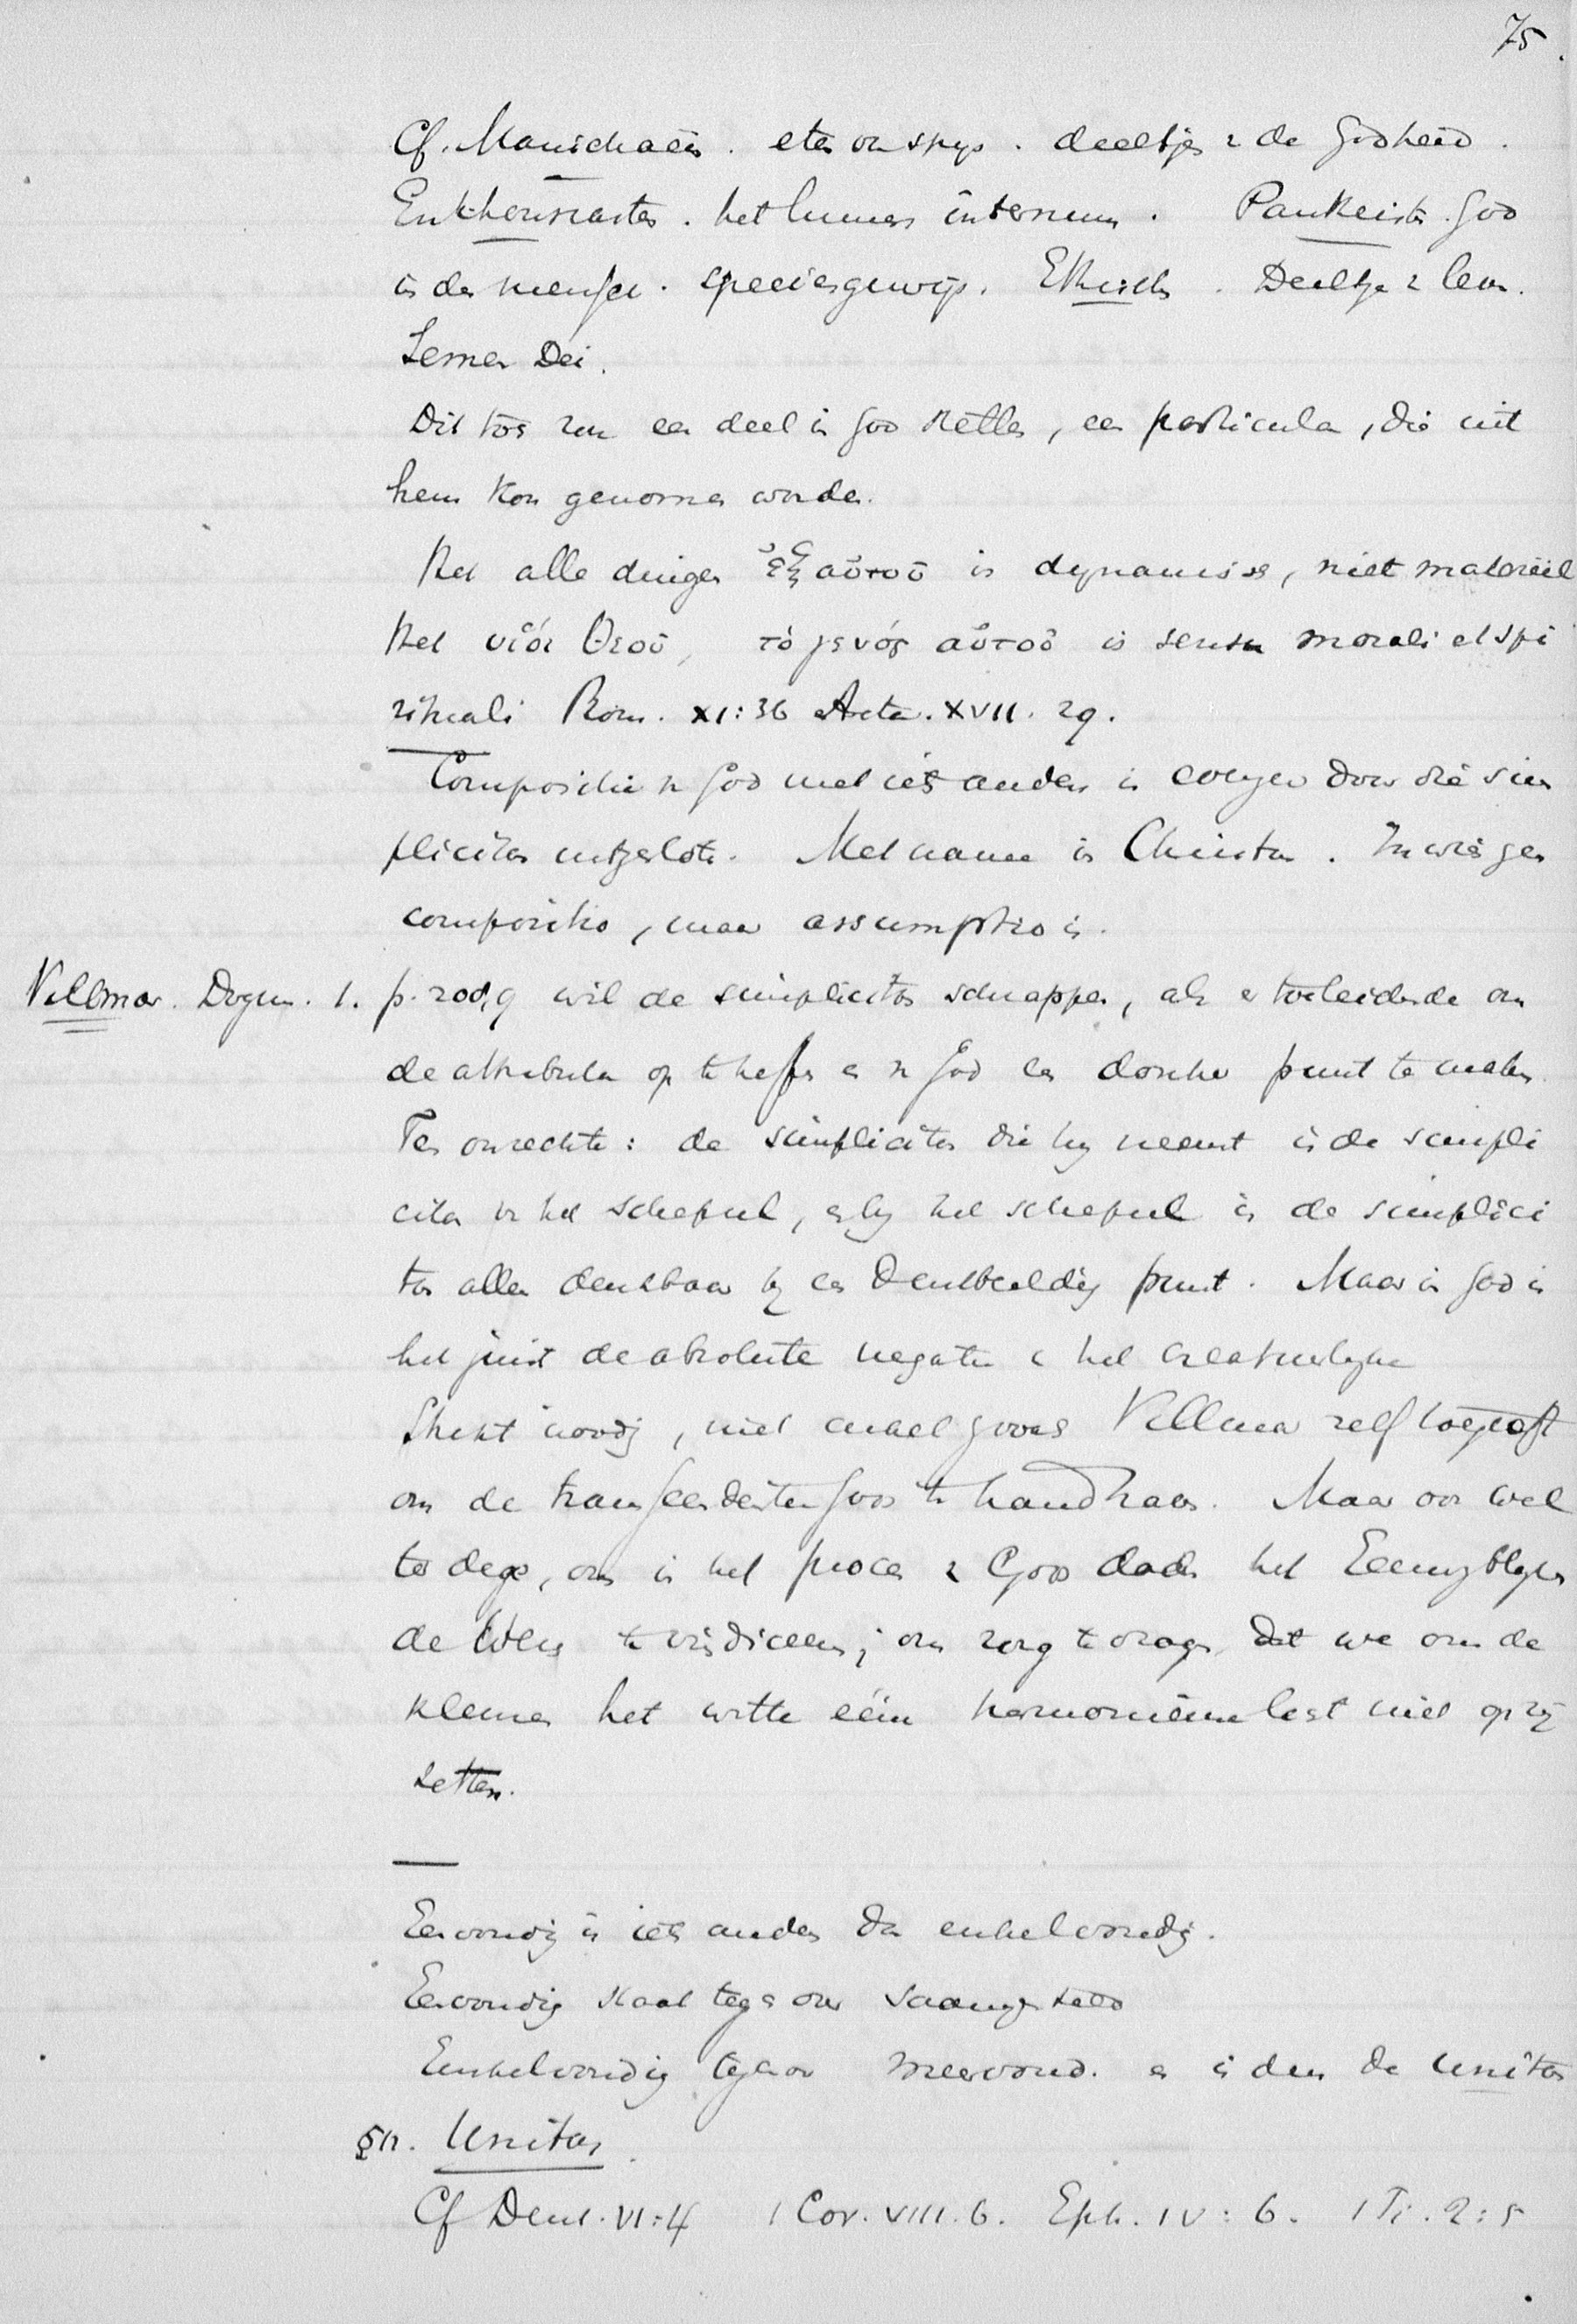 75.
Cf. Manichaeën. eten en spijs. deeltjes v de Godheid.
Enthousiasten. het lumen internum. Pantheisten. God
is de mensch. speciesgewijs. Ethisch. Deeltje v leven.
Semen Dei.
Dit tos zou een deel in God stellen, een particula, die uit
hem kon genomen worden.
Het alle dingen ἐξ αὐτοῦ is dynamisch, niet materieel
Het υἱοι Θεοῦ, τὸ γενός αὐτοῦ is sensu morali et spi
rituali Rom. XI:36 Acta. XVII. 29.
Compositie v God met iets anders is evenzeer door die sim
plicitas uitgesloten. Met name in Christus. In wien geen
compositio, maar assumptio is.
Villmar. Dogm. 1. p. 208,9 wil de simplicitas schrappen, als er toe leidende om
de attributen op te heffen en v God een donker punt te maken.
Ten onrechte: de simplicitas die hij neemt is de simpli
citas v het schepsel, en bij het schepsel is de simplici
tas alleen denkbaar bij een denkbeeldig punt. Maar in God is
het juist de absolute negatie v het creatuurlijke
Strekt noodig, niet enkel gelijk Villmar zelf toegeeft
om de transcendentie Gods te handhaven. Maar ook wel
ter dege, om in het proces v Gods daden het Eeuwig blijven
de Wezen te vindiceeren; om zorg te dragen dat we om de
kleuren het witte één harmonieuse licht niet op zij
zetten.
Eenvoudig is iets anders dan enkelvoudig.
Eenvoudig staat tegen over saamgesteld
Enkelvoudig tegenover meervoud. en is dus de unitas
§11. Unitas.
Cf Deut. VI:4 1 Cor. VIII. 6. Eph. IV: 6. 1 Ti. 2:5